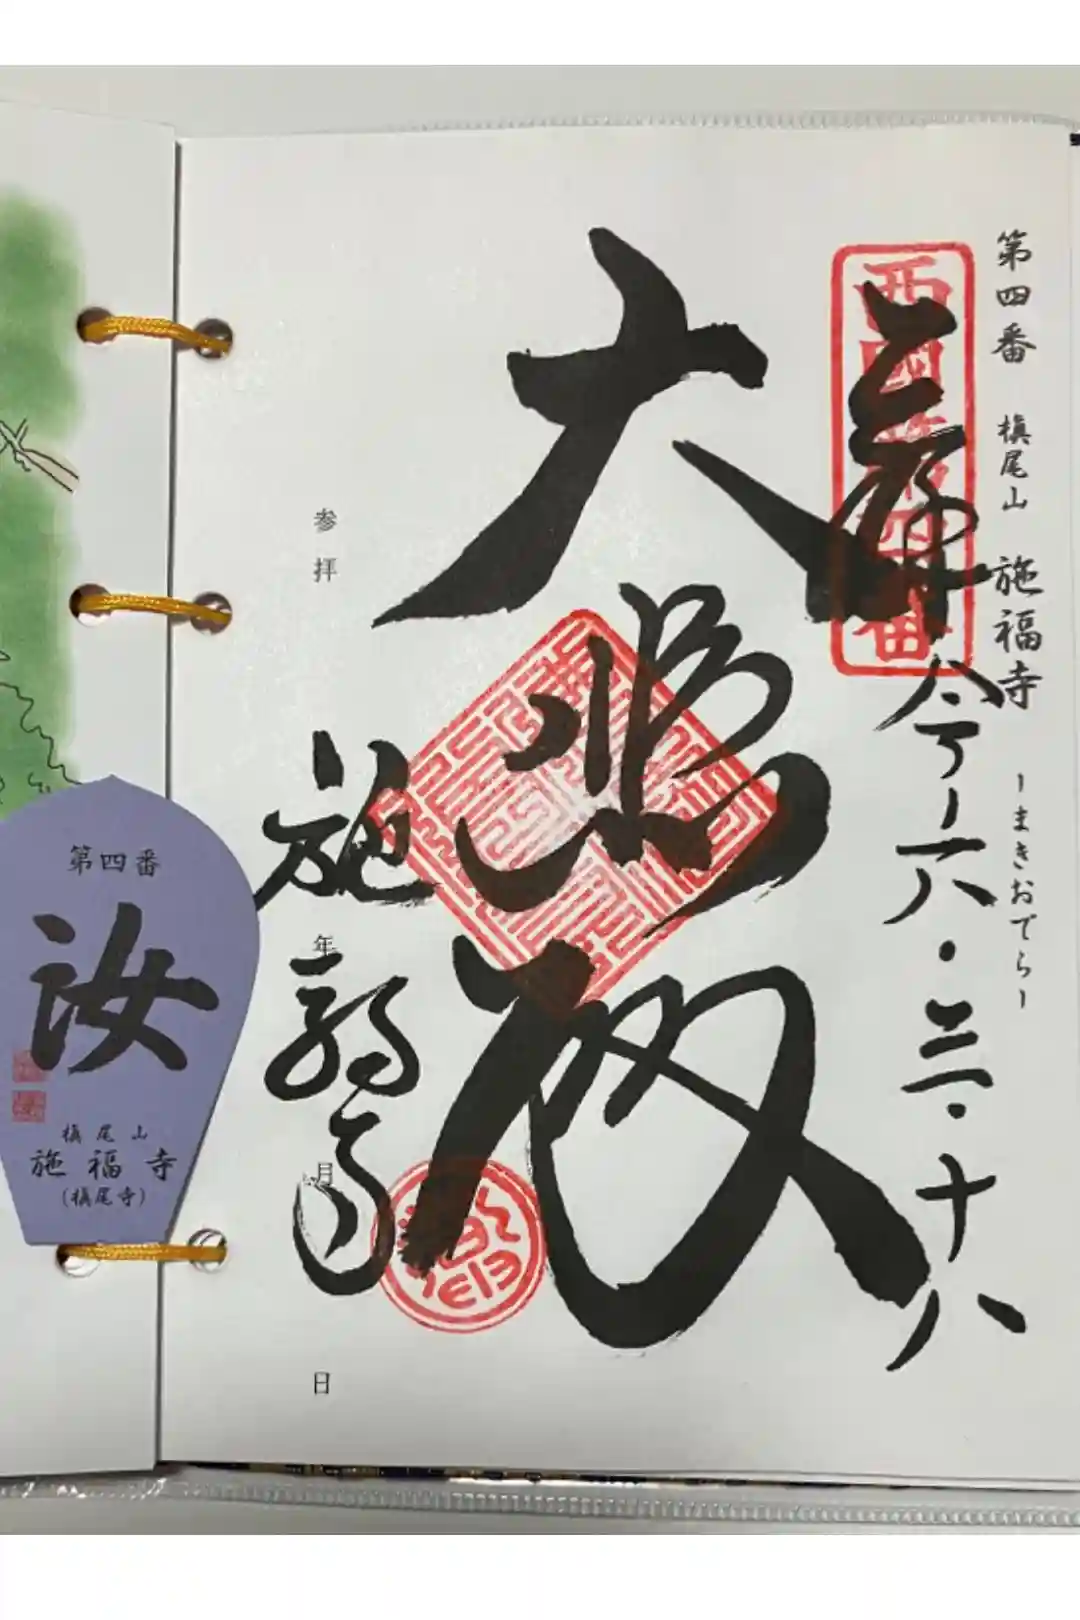 第四番 槇尾山 施福寺 ーまきおでらー
西國第四番
奉拝 令 六・三・十八
大悲殿
参拝 年 月 日
施福寺
第四番
汝
槇尾山
施福寺
(槇尾寺)